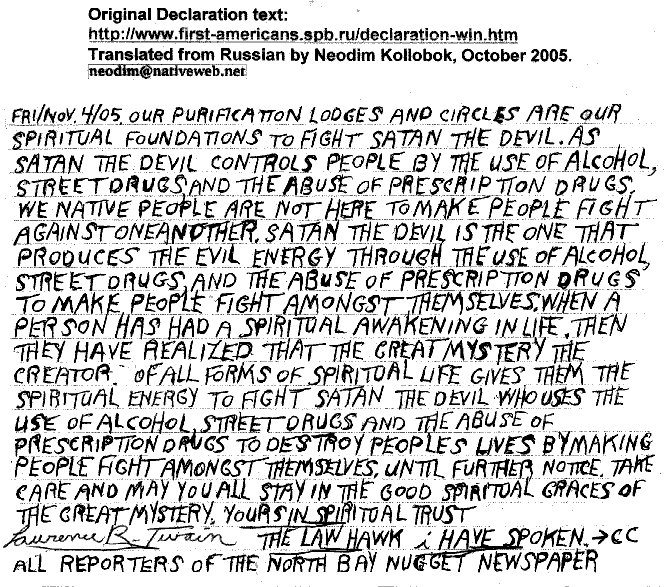 Original Declaration text:
http://www.first-americans.spb.ru/declaration-win.htm
Translated from Russian by Neodim Kollobok, October 2005.
neodim@nativeweb.net
FRI/NOV. 4/05. OUR PURIFICATION LODGES AND CIRCLES ARE OUR
SPIRITUAL FOUNDATIONS TO FIGHT SATAN THE DEVIL. AS
SATAN THE DEVIL CONTROLS PEOPLE BY THE USE OF ALCOHOL,
STREET DRUGS, AND THE ABUSE OF PRESCRIPTION DRUGS.
WE NATIVE PEOPLE ARE NOT HERE TO MAKE PEOPLE FIGHT
AGAINST ONEANOTHER. SATAN THE DEVIL IS THE ONE THAT
PRODUCES THE EVIL ENERGY THROUGH THE USE OF ALCOHOL,
STREET DRUGS, AND THE ABUSE OF PRESCRIPTION DRUGS
TO MAKE PEOPLE FIGHT AMONGST THEMSELVES. WHEN A
PERSON HAS HAD A SPIRITUAL AWAKENING IN LIFE, THEN
THEY HAVE REALIZED THAT THE GREAT MYSTERY THE
CREATOR. OF ALL FORMS OF SPIRITUAL LIFE GIVES THEM THE
SPIRITUAL ENERGY TO FIGHT SATAN THE DEVIL WHO USES THE
USE OF ALCOHOL, STREET DRUGS AND THE ABUSE OF
PRESCRIPTION DRUGS TO DESTROY PEOPLES LIVES BY MAKING
PEOPLE FIGHT AMONGST THEMSELVES. UNTIL FURTHER NOTICE, TAKE
CARE AND MAY YOU ALL STAY IN THE GOOD SPIRITUAL GRACES OF
THE GREAT MYSTERY. YOURS IN SPIRITUAL TRUST
Lawrence R. Twain THE LAW HAWK i HAVE SPOKEN. → CC
ALL REPORTERS OF THE NORTH BAY NUGGET NEWSPAPER